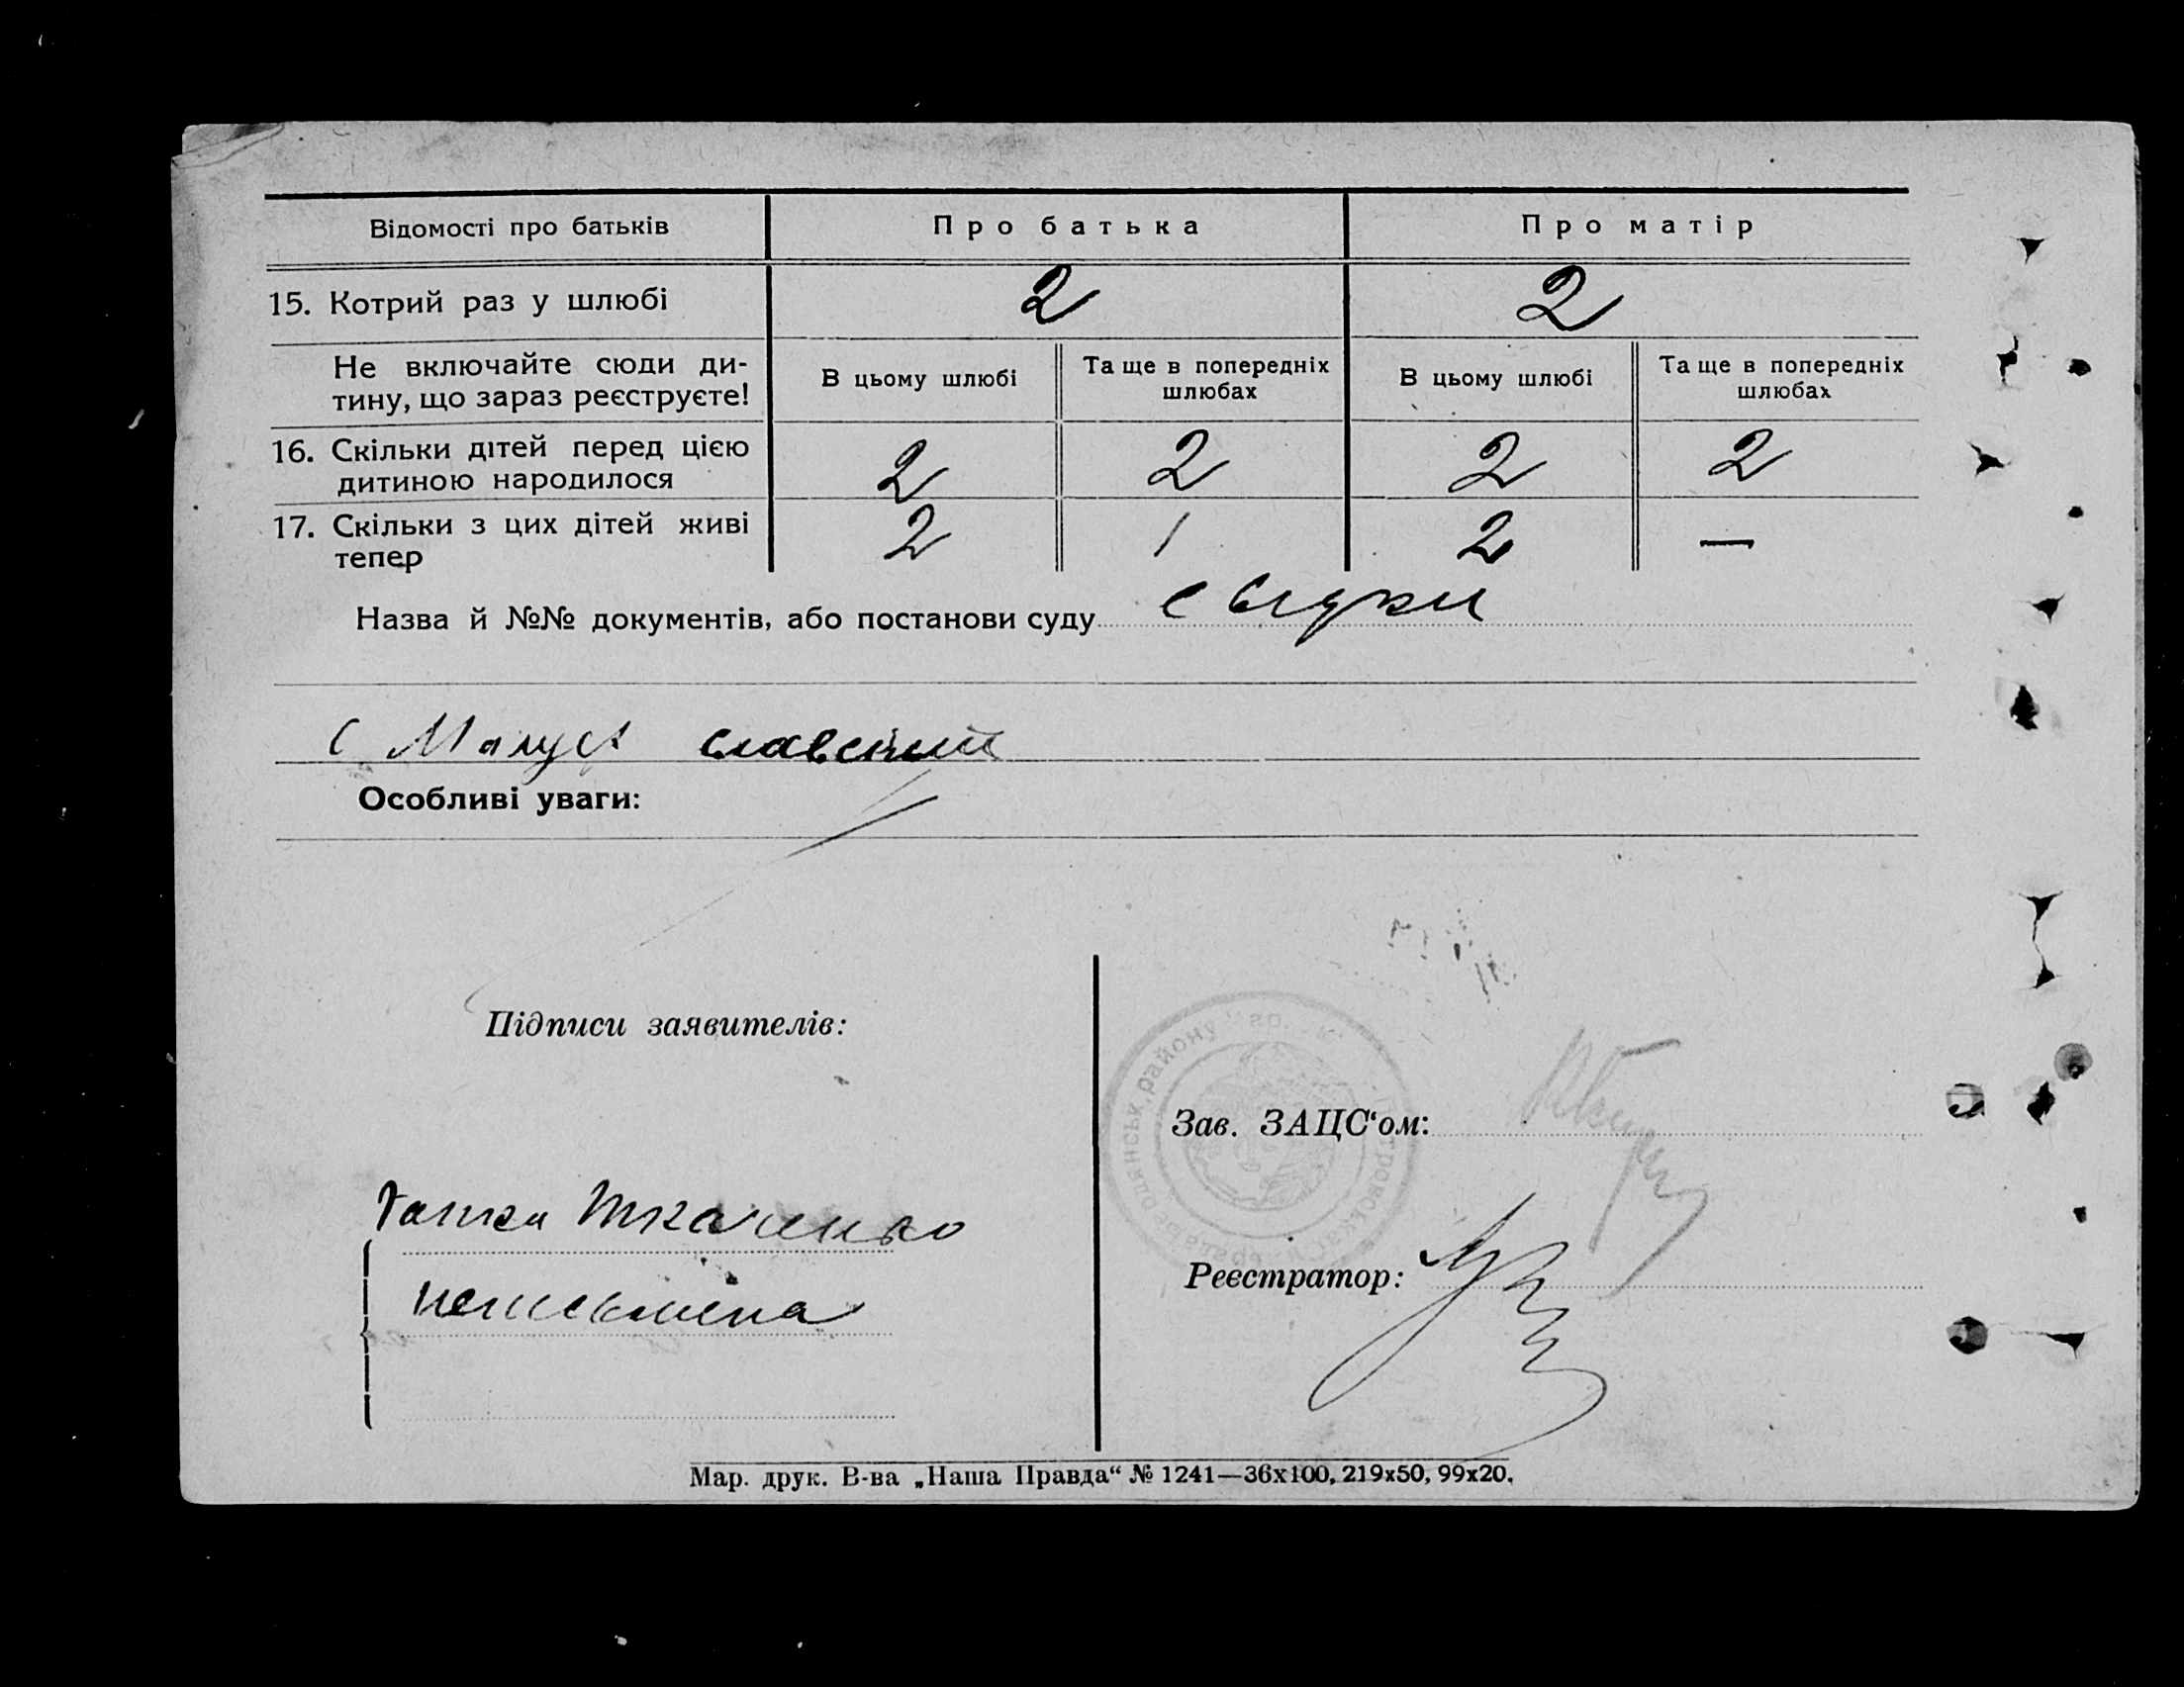 Відомості про батьків
Про батька
Про матір
15. Котрий раз у шлюбі
2
2
Не включайте сюди ди-
тину, що зараз реєструєте!
В цьому шлюбі
Та ще в попередніх
шлюбах
В цьому шлюбі
Та ще в попередніх
шлюбах
16. Скільки дітей перед цією
дитиною народилося
2
2
2
2
17. Скільки з цих дітей живі
тепер
2
1
2
—
Назва й №№ документів, або постанови суду
Особливі уваги:
Підписи заявителів:
Ткаченко
Зав. ЗАЦС'ом:
Реєстратор:
району
Мар. друк. В-ва „Наша Правда“ № 1241—36x100, 219x50, 99x20.